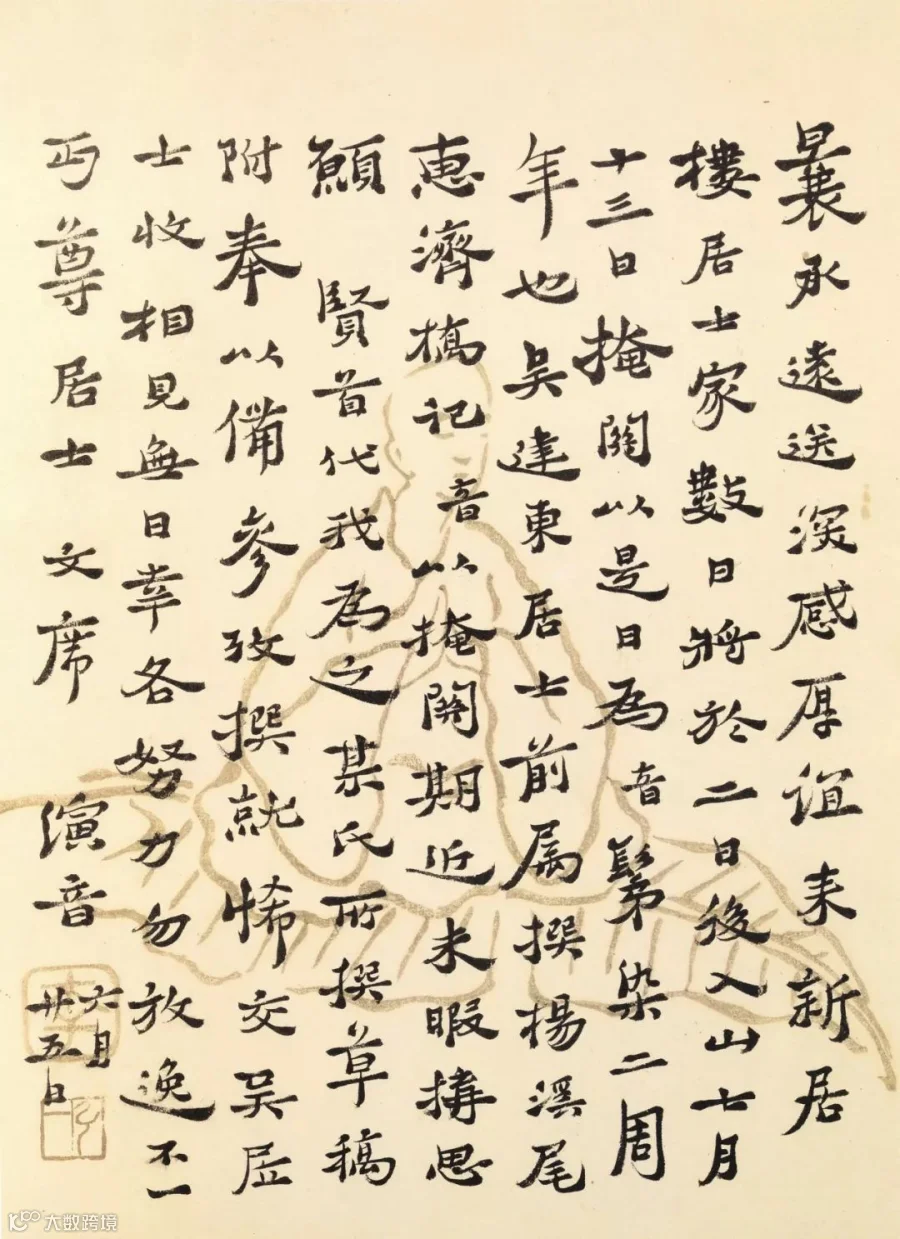 曩承遠送深感厚谊来新居
樓居士家數日將於二日後入山七月
十三日掩關以是日為音鬀染二周
年也吴建東居士前属撰楊溪尾
惠濟橋記音以掩関期近未暇搆思
願賢首代我為之某氏所撰草稿
附奉以備參攷撰就希交吴居
士收相見無日幸各努力勿放逸不一
丏尊居士文席 演音
六月
廿五日
大数跨境